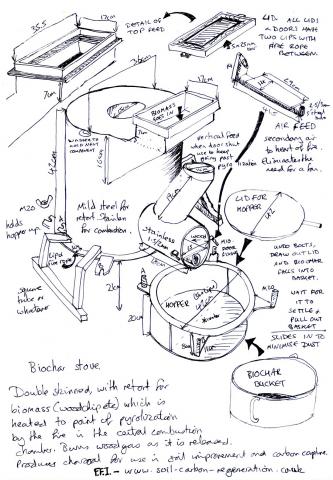 35.5
17cm
7cm
DETAIL OF
TOP FEED
LID. ALL LIDS
+ DOORS HAVE
TWO LIPS WITH
FIRE ROPE
BETWEEN.
AIR FEED
secondary air
to heart of fire.
Eliminates the
need for a fan.
BIOMASS
GOES IN
17cm
vertical feed
when door shut
use to keep
going past
pyrolization
Mild steel for
retort. Stainless
for combustion.
stainless
M20
holds
hopper up
square
tube or
whatever
LID FOR
HOPPER
UNDO BOLTS,
DRAW OUT LID
AND BIOCHAR
FALLS INTO
BASKET.
WAIT FOR
IT TO
SETTLE &
PULL OUT
BASKET
SLIDES IN TO
MINIMISE DUST
HOPPER
M20
20cm
BIOCHAR
BUCKET
Biochar stove.
Double skinned, with retort for
biomass (woodchip etc) which is
heated to point of pyrolization
by the fire in the central combustion
chamber. Burns woodgas as it is released.
Produces charcoal for use in soil improvement and carbon capture.
E.F.I. - www.soil-carbon-regeneration.co.uk